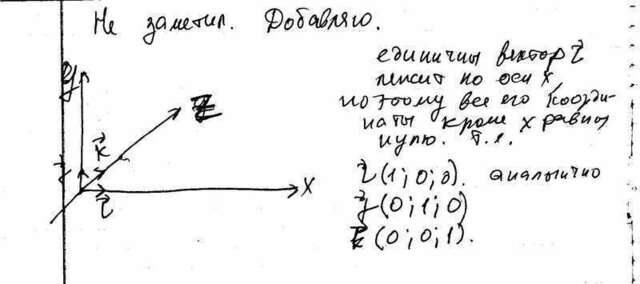 Не заметил. Добавляю.
единичны вектор i
лежит по оси x,
поэтому все его коорди-
наты кроме x равны
нулю. т.е.
i (1; 0; 0). аналогично
j (0; 1; 0)
k (0; 0; 1).
y
z
k
j
i
x